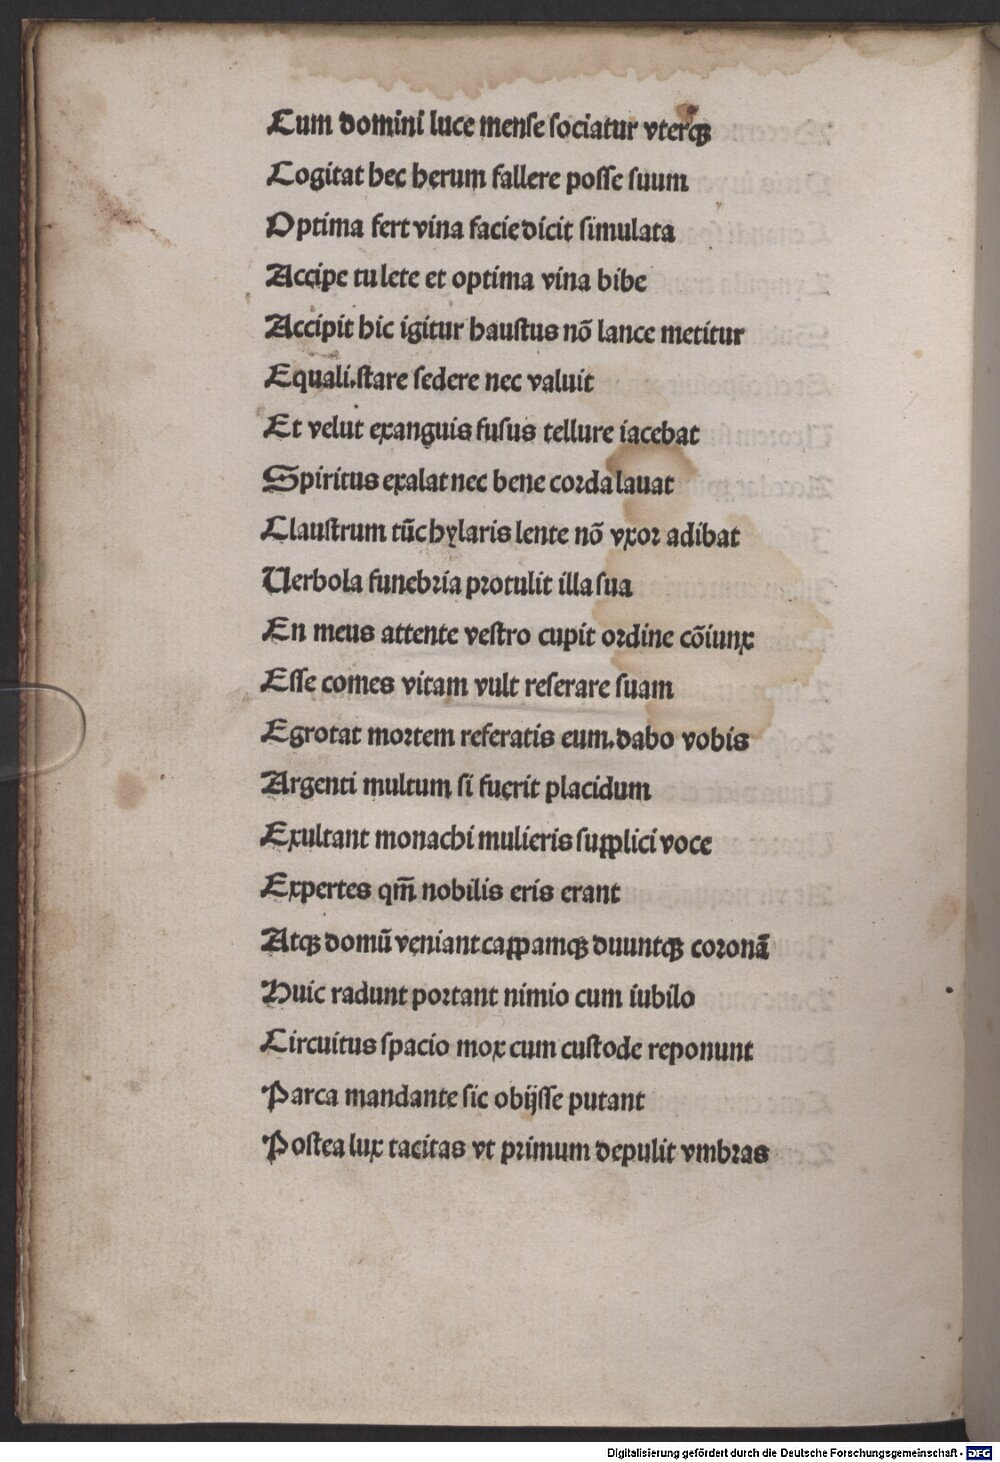 Cum domini luce mense sociatur vterqꝫ
Cogitat hec herum fallere posse suum
Optima fert vina facie dicit simulata
Accipe tu lete et optima vina bibe
Accipit hic igitur haustus nō lance metitur
Equali.stare sedere nec valuit
Et velut exanguis fusus tellure iacebat
Spiritus exalat nec bene corda lauat
Claustrum tūc hylaris lente nō vxor adibat
Verbola funebria protulit illa sua
En meus attente vestro cupit ordine cōiunx
Esse comes vitam vult reserare suam
Egrotat mortem referatis eum.dabo vobis
Argenti multum si fuerit placidum
Exultant monachi mulieris supplici voce
Expertes qm̄ nobilis eris erant
Atqꝫ domū veniant cappamqꝫ duuntqꝫ coronā
Huic radunt portant nimio cum iubilo
Circuitus spacio mox cum custode reponunt
Parca mandante sic obijsse putant
Postea lux tacitas vt primum depulit vmbras
Digitalisierung gefördert durch die Deutsche Forschungsgemeinschaft - DFG